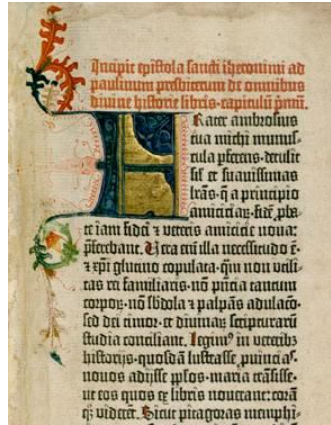 Incipit epistola sancti iheronimi ad
paulinum presbiterum de omnibus
divine historie libris· capitulū pmū.
Frater ambrosius
tua michi munus-
cula pferens· detulit
sił et suavissimas
lr̄as· q̄ a principio
amiciciaꝝ· fidē ꝓba-
te iam fidei ⁊ veteris amicicie nova:
p̄ferebant. Vera em̄ illa necessitudo ē·
⁊ xp̄i glutino copulata· qm̄ non utili-
tas rei familiaris· nō p̄ntia tantum
corpoꝝ· nō s̄bdola ⁊ palpās adulac̄o·
sed dei timor· et divinaꝝ scripturarū
studia conciliant. Legimꝰ in veteribꝫ
historijs· quosdā lustrasse ꝓvīcias·
novos adijsse pp̄los· maria trāsisse·
ut eos quos ex libris noverant: corā
qꝫ viderēt. Sicut pitagoras memphi-